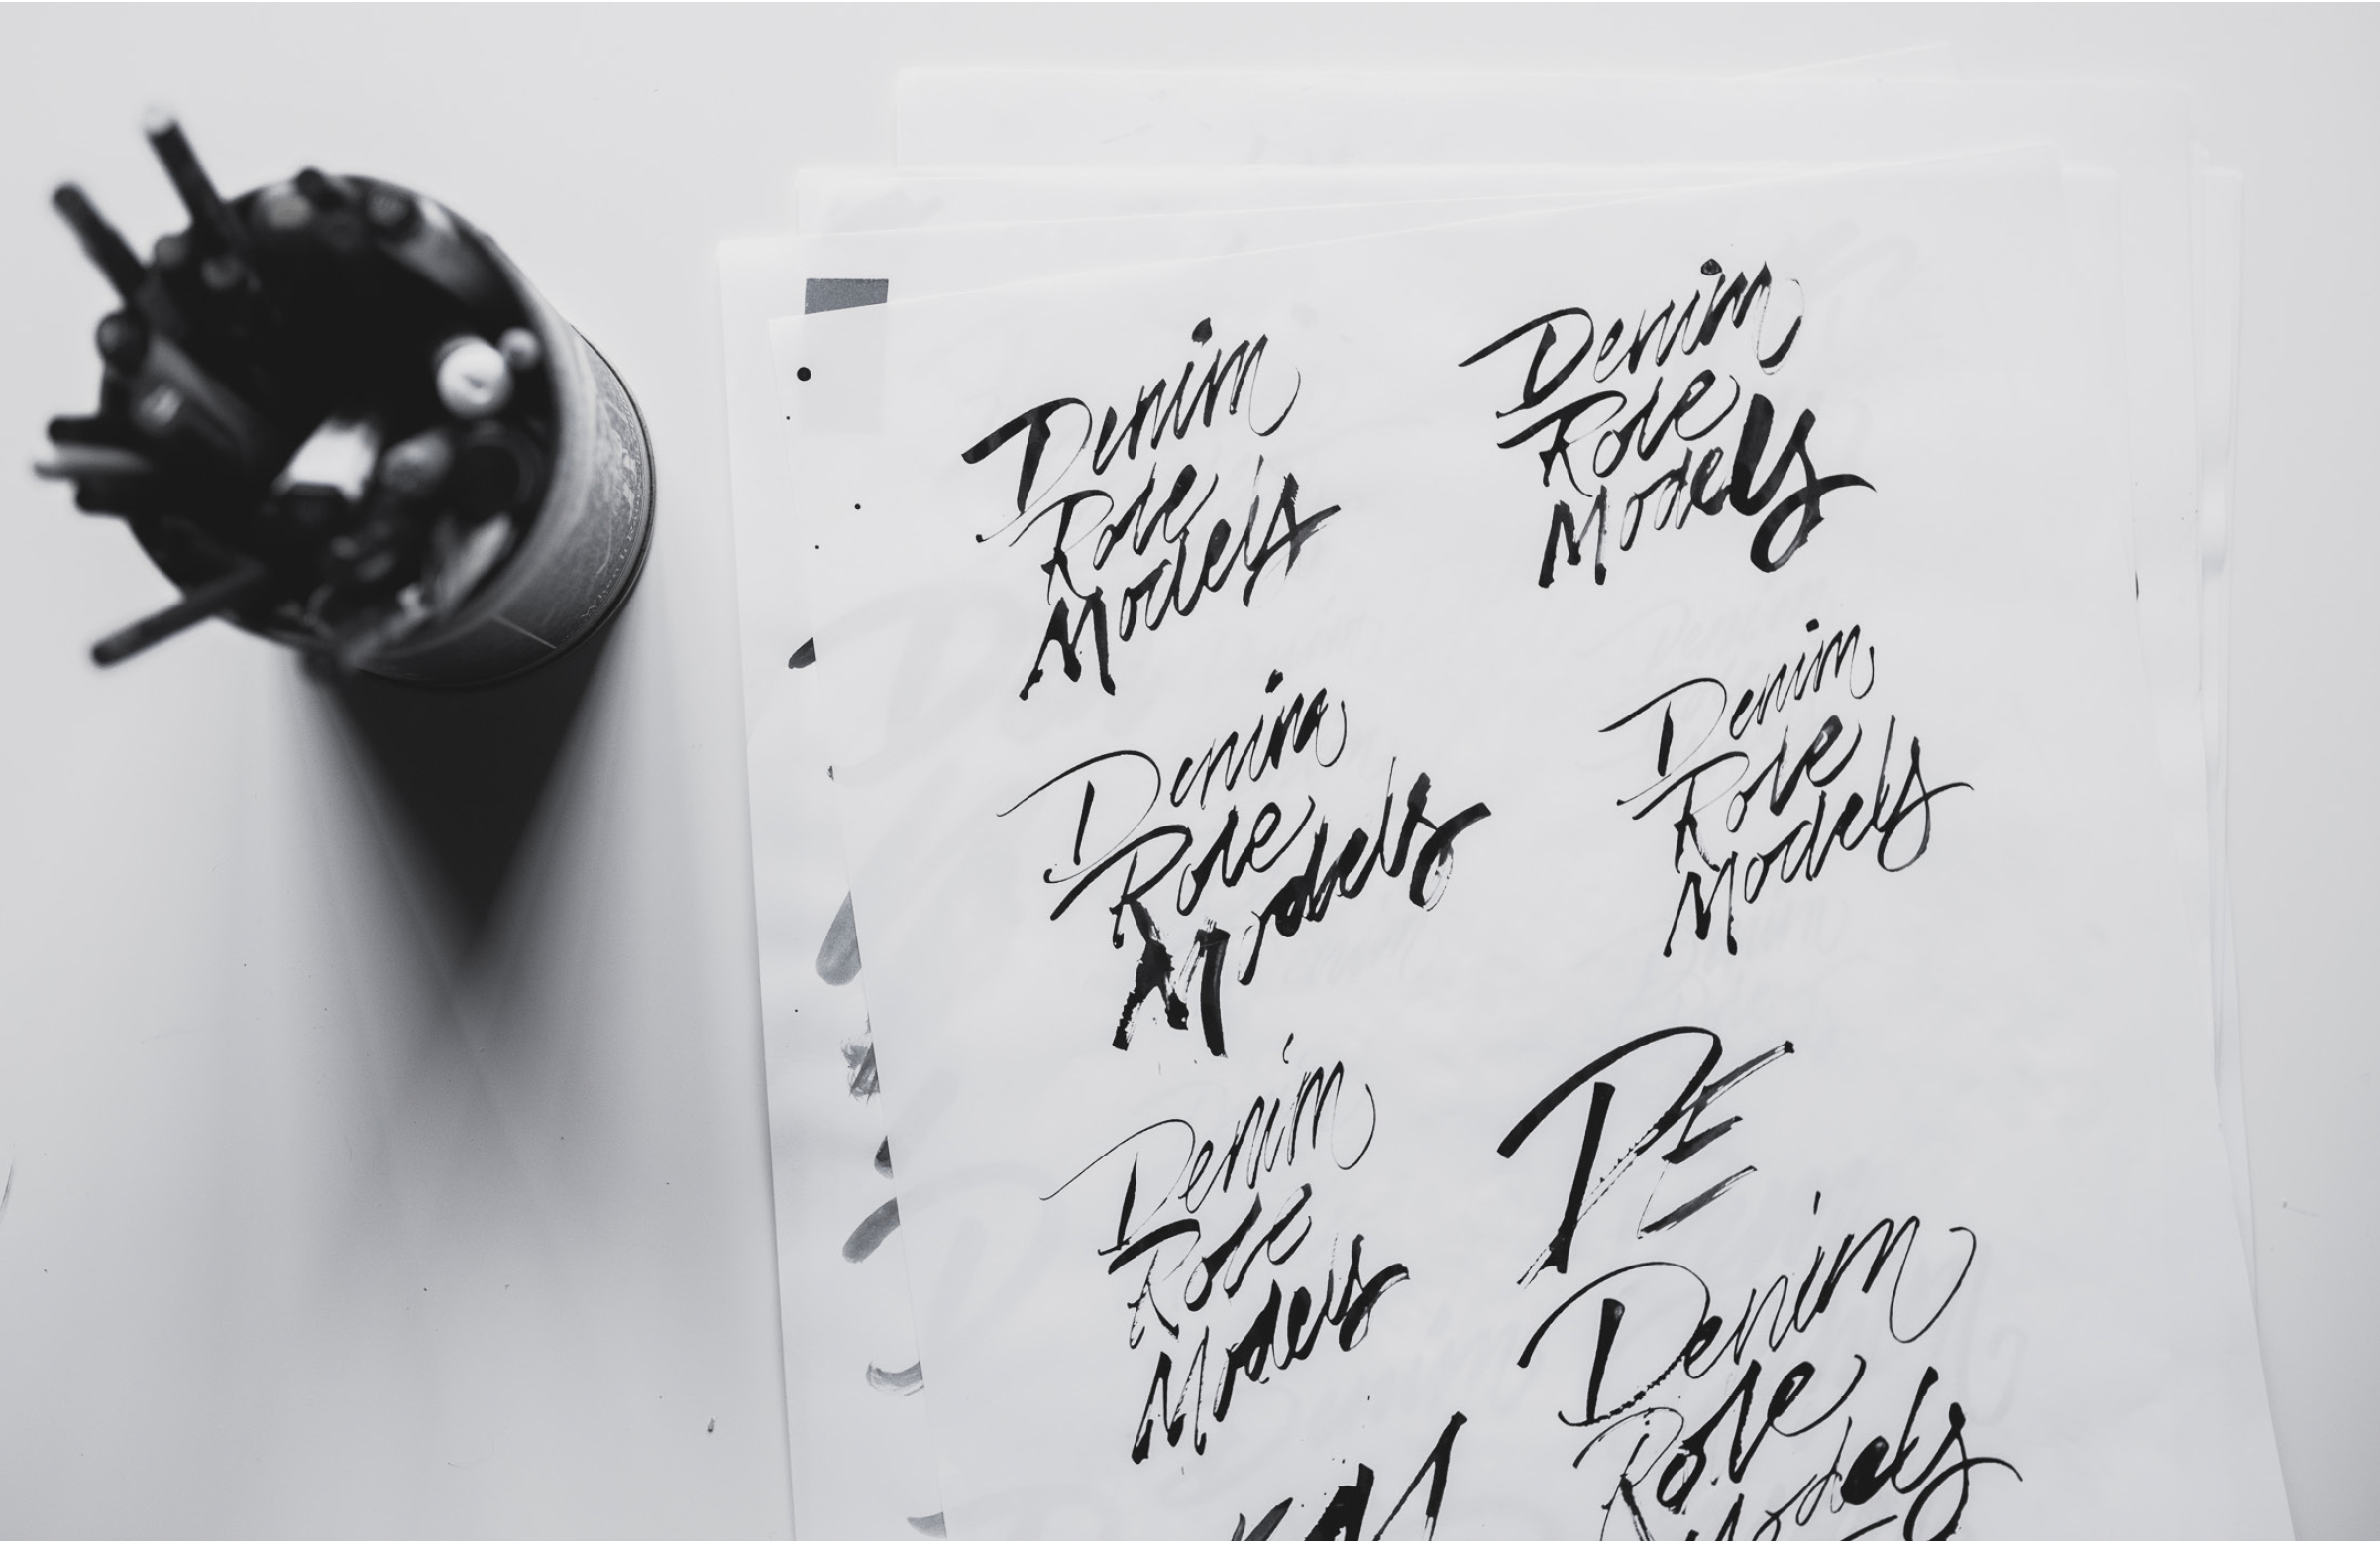 Denim
Role
Models
Denim
Role
Models
Denim
Role
Models
Denim
Role
Models
Denim
Role
Models
DE
Denim
Role
Models